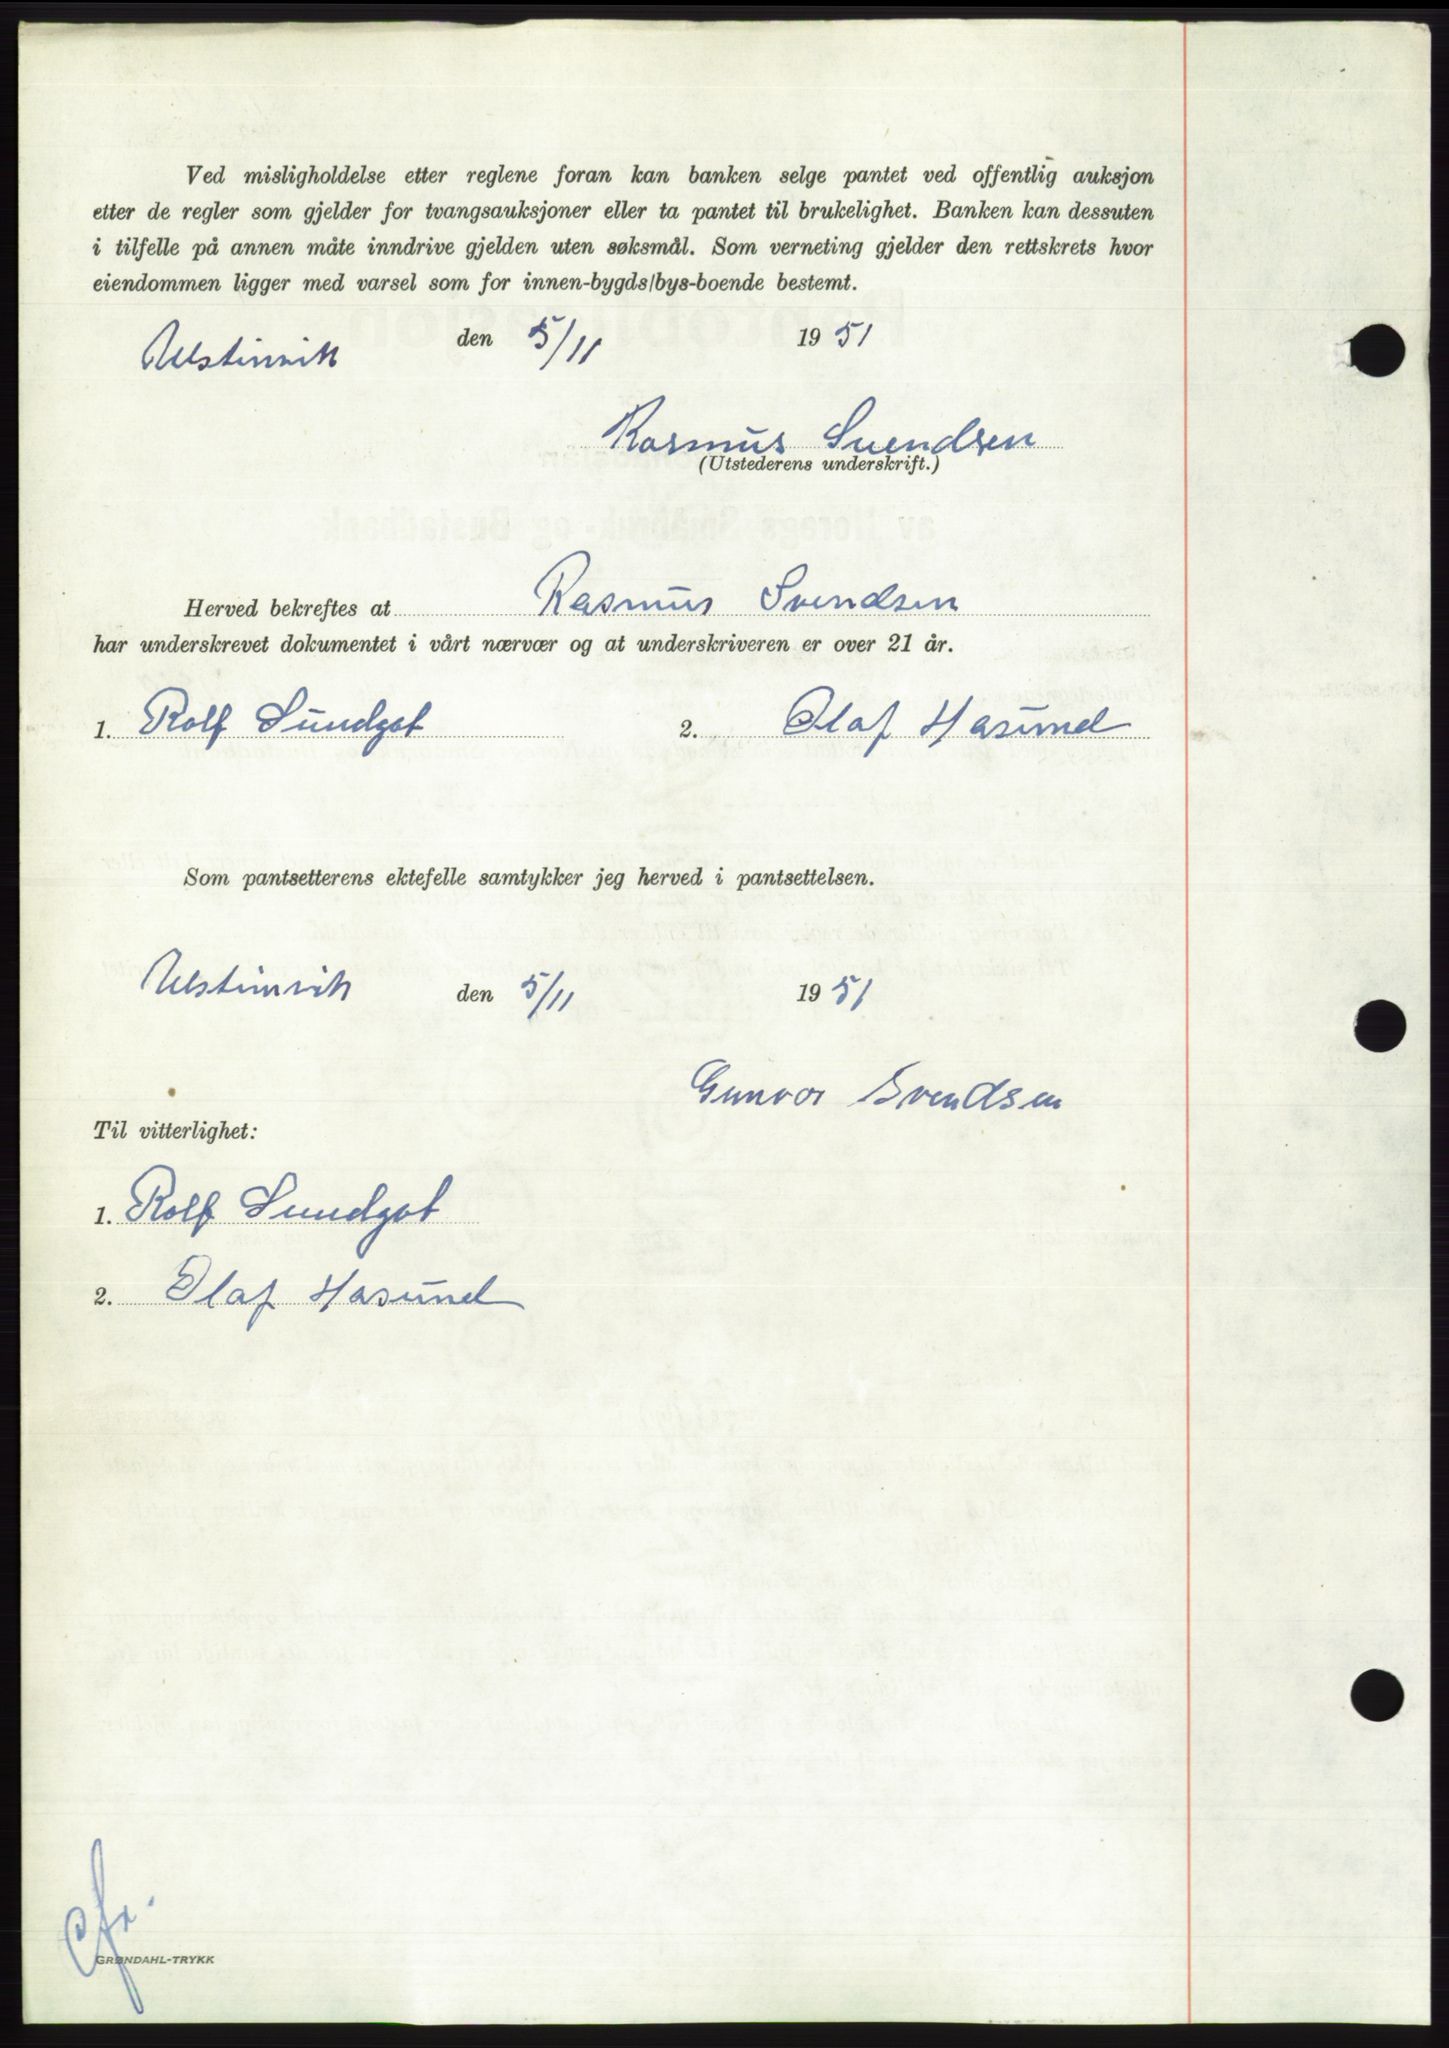 Ved misligholdelse etter reglene foran kan banken selge pantet ved offentlig auksjon
etter de regler som gjelder for tvangsauksjoner eller ta pantet til brukelighet. Banken kan dessuten
i tilfelle på annen måte inndrive gjelden uten søksmål. Som verneting gjelder den rettskrets hvor
eiendommen ligger med varsel som for innen-bygds/bys-boende bestemt.
Ulsteinvik den 5/11 1951
Rasmus Svendsen
(Utstederens underskrift.)
Herved bekreftes at Rasmus Svendsen
har underskrevet dokumentet i vårt nærvær og at underskriveren er over 21 år.
1. Rolf Sundgot 2. Olaf Hasund
Som pantsetterens ektefelle samtykker jeg herved i pantsettelsen.
Ulsteinvik den 5/11 1951
Gunvor Svendsen
Til vitterlighet:
1. Rolf Sundgot
2. Olaf Hasund
GRØNDAHL-TRYKK